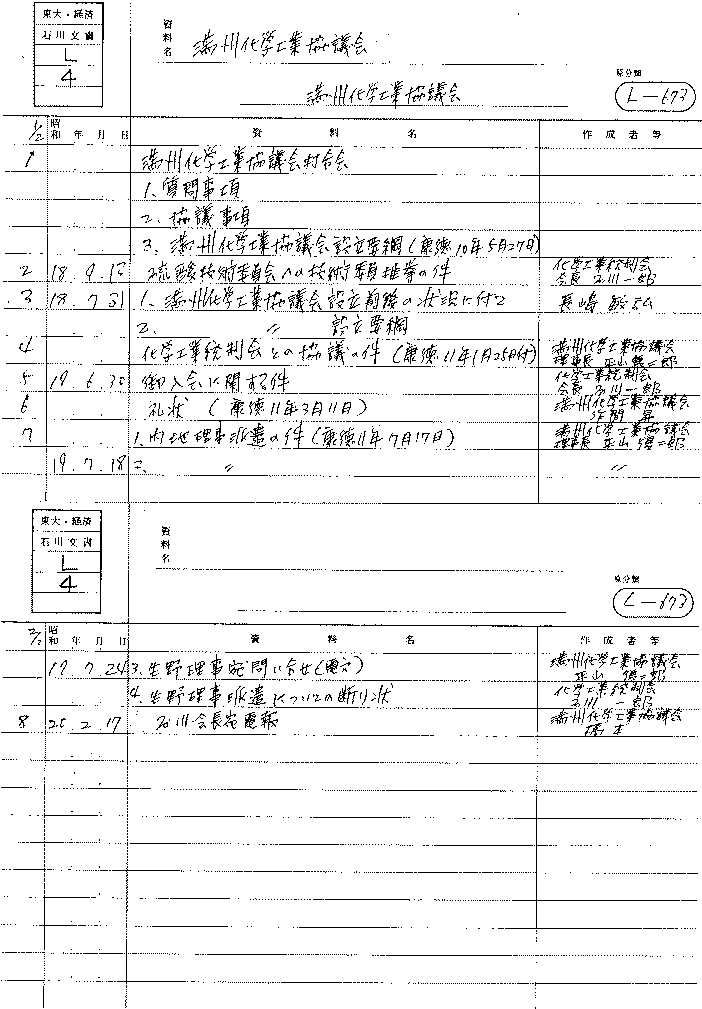 東大・経済
石川文書
L
4
資料名 満州化学工業協議会
満州化学工業協議会
原分類
L-673
1/2 昭和 年 月 日 資料名 作成者等
1 満州化学工業協議会打合会
1、質問事項
2、協議事項
3、満州化学工業協議会設立要綱(康徳10年5月27日)
2 18.9.13 硫酸技術委員会への技術委員推薦の件 化学工業統制会
会長 石川一郎
3 18.7.31 1、満州化学工業協議会設立前後の状況に付て 長嶋敏
2、 〃 設立要綱
4 化学工業統制会との協議の件(康徳11年1月25日付) 満州化学工業協議会
理事長 平山 二郎
5 19.6.30 御入会に関する件 化学工業統制会
会長 石川一郎
6 礼状 (康徳11年3月11日) 満州化学工業協議会
7 1、内地理事派遣の件(康徳11年7月17日) 満州化学工業協議会
理事長 平山 二郎
19.7.18 2、 〃 〃
東大・経済
石川文書
L
4
資料名
原分類
L-673
2/2 昭和 年 月 日 資料名 作成者等
19.7.24 3、生野理事宛問い合せ(電文) 満州化学工業協議会
平山 二郎
4、生野理事派遣についての断り状 化学工業統制会
石川一郎
8 20.2.17 石川会長宛電報 満州化学工業協議会
橋本